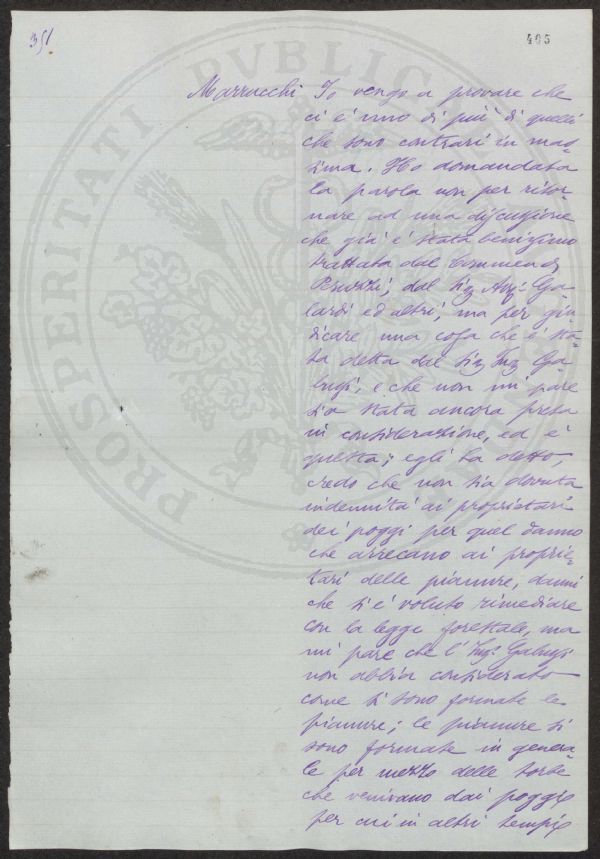 351
405
Marrucchi Io vengo a provare che
ci è uno di più di quelli
che sono contrari in mas=
sima. Ho domandata
la parola non per ritor=
nare ad una discussione
che già è stata benissimo
trattata dal Commend.
Peruzzi, dal Sig Avv.
ed altri, ma per giu=
dicare una cosa che è sta=
ta detta dal Sig Ing Ga=
brugi, e che non mi pare
sia stata ancora presa
in considerazione, ed è
questa; egli ha detto,
credo che non sia dovuta
indennità ai proprietari
dei poggi per quel danno
che arrecano ai proprie=
tari delle pianure, danni
che si è voluto rimediare
con la legge forestale, ma
mi pare che l'Ing.
non abbia considerato
come si sono formate le
pianure; le pianure si
sono formate in genera=
le per mezzo delle torbe
che venivano dai poggi
per cui in altri tempi
PROSPERITATI PVBLICAE